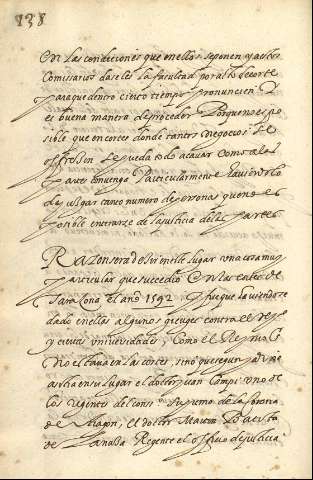 138
en las condiciones que en ellas se ponen y a estos
Comissarios darseles la facultad por acto de corte
para que dentro cierto tiempo pronuncien
es buena manera de proceder Porque no es po
sible que en cortes donde tantos negocios se
offrescen se pueda todo acavar como a las
partes convenga Particularmente haviendolo
de juzgar tanto numero de personas que no es
posible enterarse de la justicia de las partes
Razon sera dezir en este lugar una cosa muy
particular que succedio en las cortes de
Taraçona el año 1592. y fue que haviendose
dado en ellas algunos greuges contra el Rey
y ciertas universidades, Como el Rey no
estava en las cortes, sino que
en su lugar el doctor Juan Campi uno de
los regentes del cons.º supremo de la Corona
de Aragon, el doctor Martin Bautista
de Lanuza Regente el officio de justicia